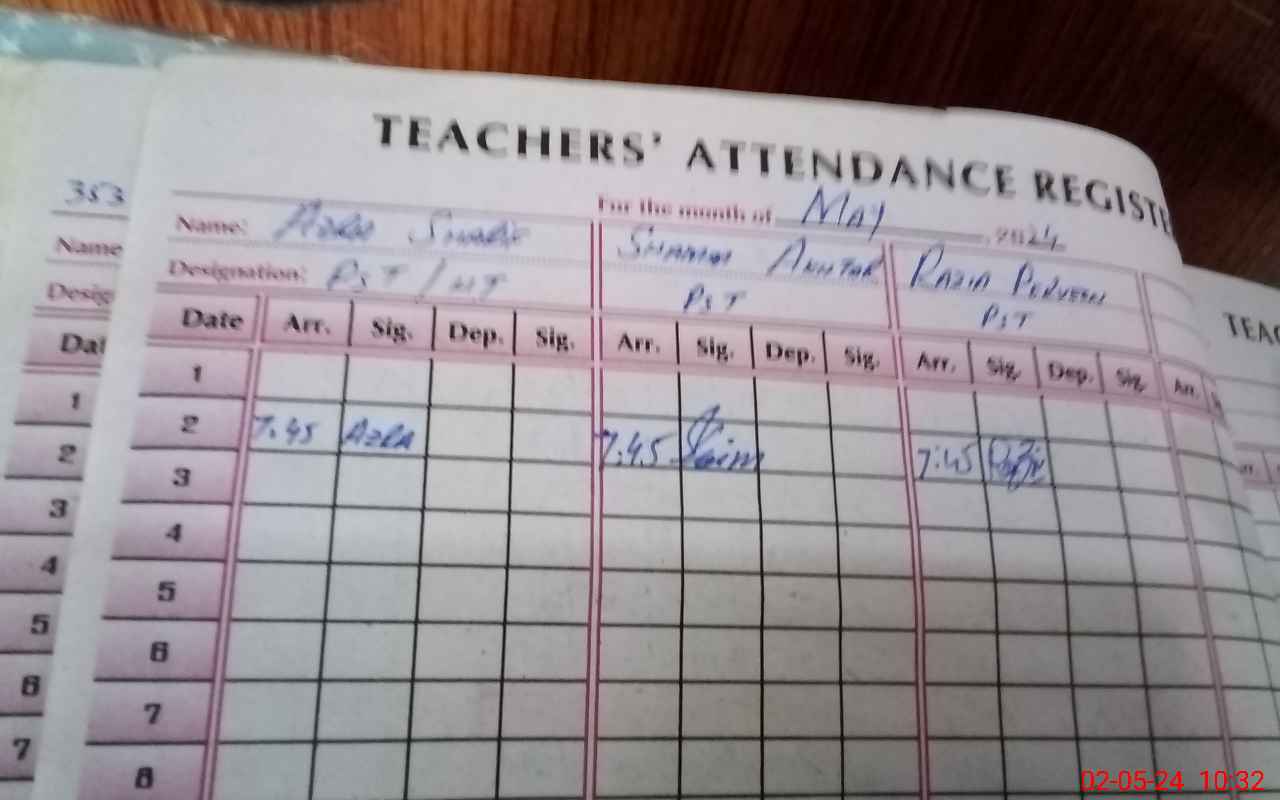 TEACHERS' ATTENDANCE REGISTE
For the month of May 2024
353
Name: Azra
Designation: PST / HT
AKHTAR PST
RAZIA PERVEEN PST
Date Arr. Sig. Dep. Sig. Arr. Sig. Dep. Sig. Arr. Sig. Dep. Sig. Arr.
1
2 7.45 AZRA 7.45 7:45
3
4
5
6
7
8
Name
Desig
Dat
1
2
3
4
5
6
7
TEAC
02-05-24 10:32